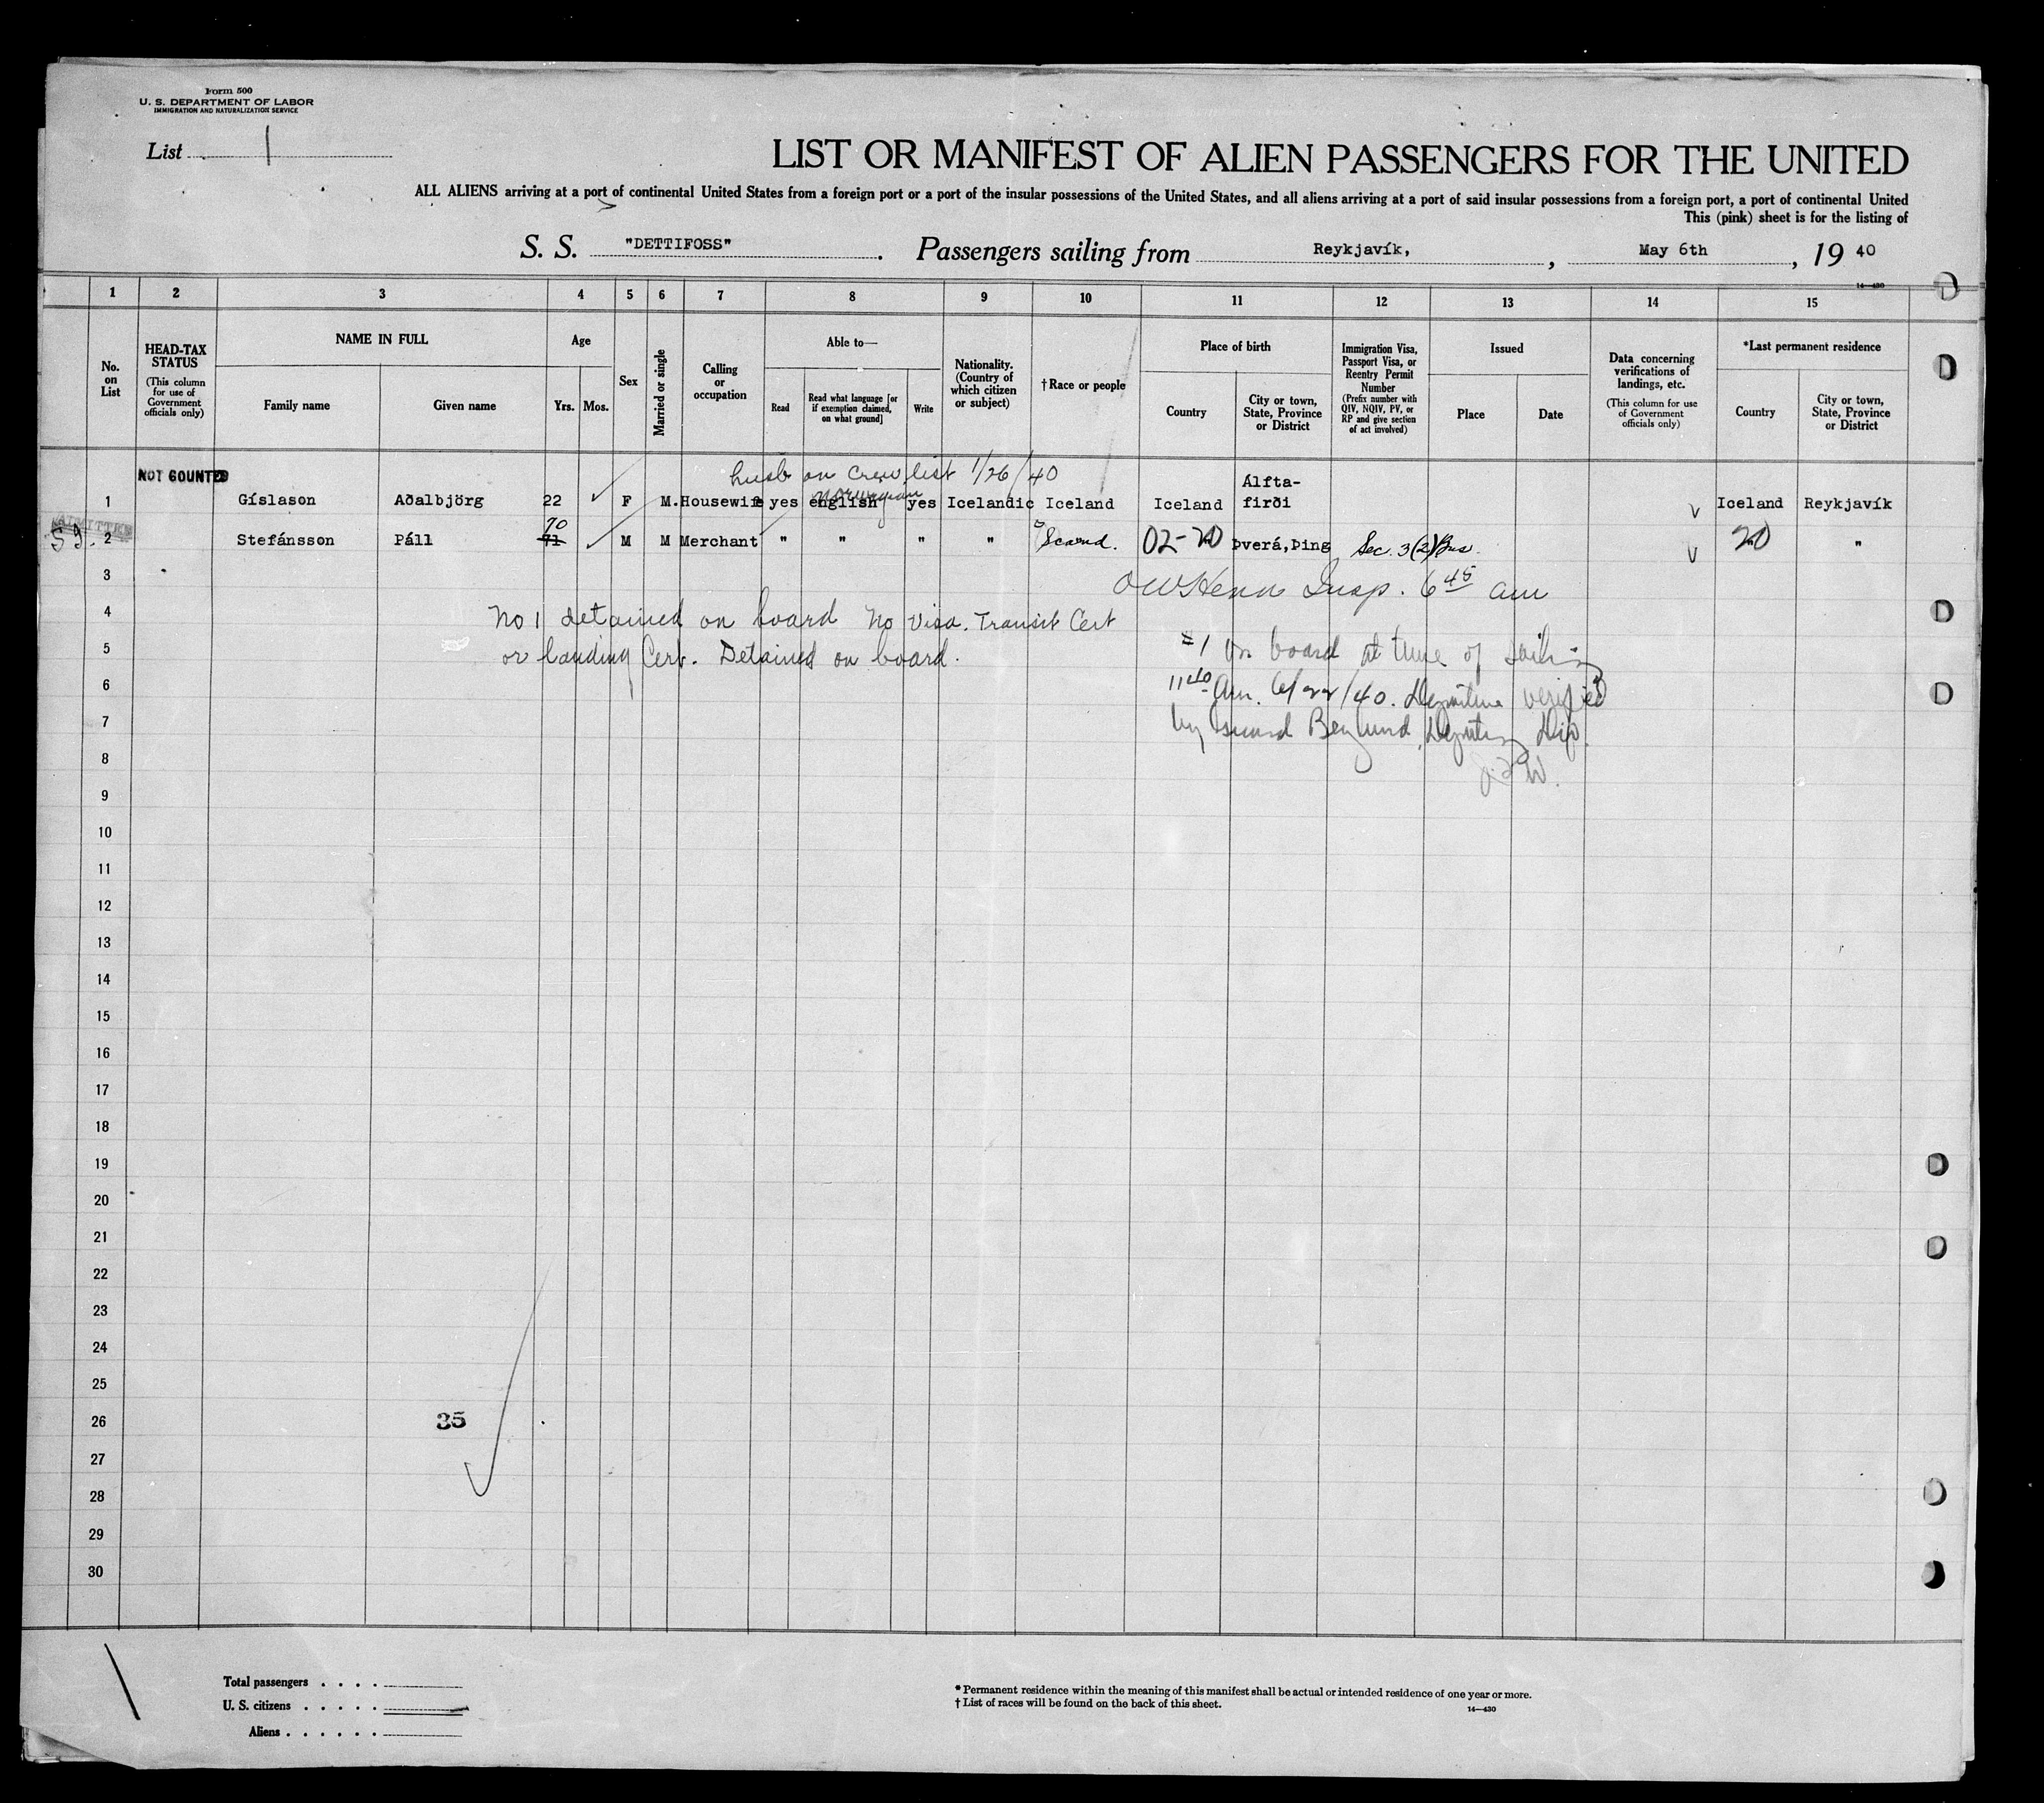 Form 500
U. S. DEPARTMENT OF LABOR
IMMIGRATION AND NATURALIZATION SERVICE
List 1
LIST OR MANIFEST OF ALIEN PASSENGERS FOR THE UNITED
ALL ALIENS arriving at a port of continental United States from a foreign port or a port of the insular possessions of the United States, and all aliens arriving at a port of said insular possessions from a foreign port, a port of continental United
This (pink) sheet is for the listing of
S. S. "DETTIFOSS" . Passengers sailing from Reykjavík, , May 6th , 19 40
14—430
1 2 3 4 5 6 7 8 9 10 11 12 13 14 15
No. on List
HEAD-TAX STATUS
(This column for use of Government officials only)
NAME IN FULL
Family name
Given name
Age
Yrs.
Mos.
Sex
Married or single
Calling or occupation
Able to—
Read
Read what language [or if exemption claimed, on what ground]
Write
Nationality. (Country of which citizen or subject)
†Race or people
Place of birth
Country
City or town, State, Province or District
Immigration Visa, Passport Visa, or Reentry Permit Number
(Prefix number with QIV, NQIV, PV, or RP and give section of act involved)
Issued
Place
Date
Data concerning verifications of landings, etc.
(This column for use of Government officials only)
*Last permanent residence
Country
City or town, State, Province or District
NOT COUNTED
husb on crew list 1/26/40
norwegian
1 Gíslason Aðalbjörg 22 F M. Housewife yes english yes Icelandic Iceland Iceland Álfta-firði Iceland Reykjavík
ADMITTED
70
2 Stefánsson Páll 71 M M Merchant " " " " Scand. 02-20 Þverá,Þing Sec. 3(2)Bus. 20 "
3
Insp. 6 45 am
4 No 1 detained on board No Visa. Transit Cert
5 or landing Cert. Detained on board.
#1 on board at time of sailing
6 11 40 am. 6/22/40. Departure verified
7 by guard Berglund, Deputy
8
9
10
11
12
13
14
15
16
17
18
19
20
21
22
23
24
25
26 35
27
28
29
30
Total passengers . . . .
U. S. citizens . . . . .
Aliens . . . . . .
* Permanent residence within the meaning of this manifest shall be actual or intended residence of one year or more.
† List of races will be found on the back of this sheet.
14—430